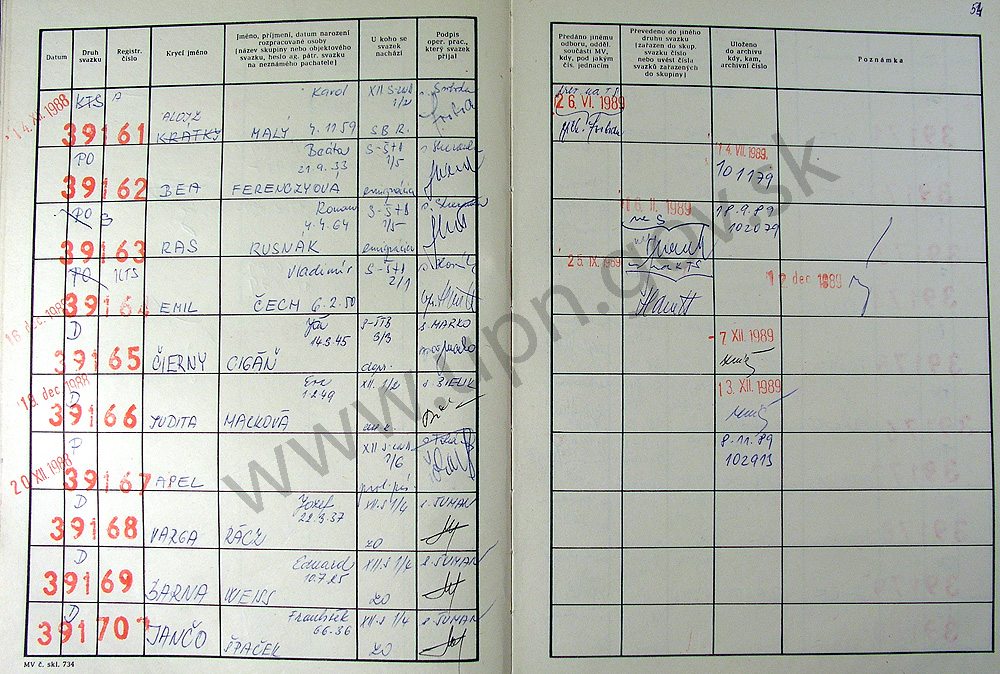 54
Datum
Druh svazku
Registr. číslo
Krycí jméno
Jméno, příjmení, datum narození
rozpracované osoby
[název skupiny nebo objektového
svazku, heslo ag. pátr. svazku
na neznámého pachatele]
U koho se
svazek
nachází
Podpis
oper. prac.,
který svazek
přijal
Předáno jinému
odboru, odděl.
součásti MV,
kdy, pod jakým
čís. jednacím
Převedeno do jiného
druhu svazku
[zařazen do skup.
svazku číslo
nebo uvést čísla
svazků zařazených
do skupiny]
Uloženo
do archivu
kdy, kam,
archivní číslo
Poznámka
14. XI. 1988
KTS A
39161
ALOJZ
KRÁTKY
Karol
MALÝ 4.1159
SB R.
26. VI. 1989
PO
39162
BEA
Beáta
21.9.33
FERENCZYOVA
S-ŠtB
1/5
emigrácia
14. VII. 1989
101179
PO S
39163
RAS
Roman
4.4.64
RUSNAK
S-ŠtB
1/5
emigrácia
16. II. 1989
18.9.89
102079
PO KTS
39164
EMIL
Vladimír
ČECH 6.2.50
S-ŠtB
2/1
25. IX. 1989
12 dec. 1989
16 dec. 1988
D
39165
ČIERNY
Ján
14.3.45
CIGÁŇ
S-ŠTB
3/3
s. MARKO
-7 XII. 1989
18 dec. 1988
D
39166
JUDITA
Eva
1.2.49
MACKOVÁ
XII. 1/2
s. BIELIK
13. XII. 1989
20 XII. 1988
P
39167
APEL
1/6
8.11.89
102913
D
39168
VARGA
Jozef
22.3.37
RÁCZ
XII.S 1/4
ZO
s. ŠUMAN
D
39169
ŽARNA
Eduard
10.7.25
WEISS
XII.S 1/4
ZO
s. ŠUMAN
D
39170
JANČO
František
6.6.36
ŠPAČEK
XII.S 1/4
ZO
s. ŠUMAN
MV č. skl. 734
www.upn.gov.sk